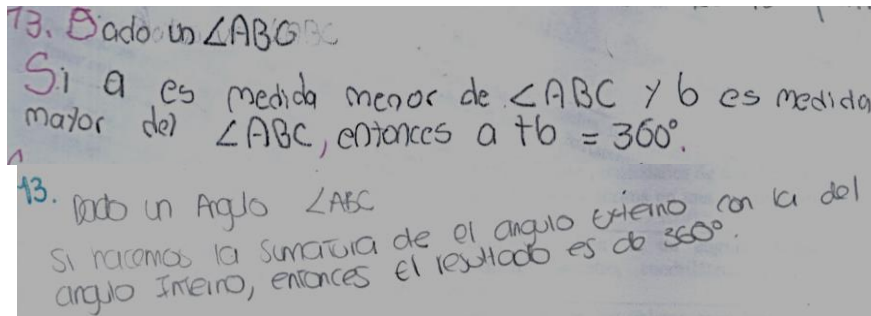 13. Dado un ∠ABC
Si a es medida menor de ∠ABC y b es medida
mayor del ∠ABC, entonces a + b = 360°.
13. Dado un Aglo ∠ABC
Si hacemos la sumatoria de el angulo externo con la del
angulo Interno, entonces El resultado es de 360°.